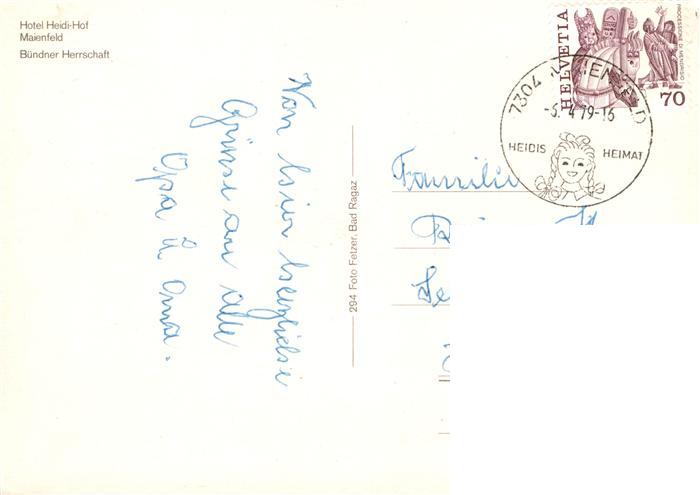 Hotel Heidi-Hof
Maienfeld
Bündner Herrschaft
Von hier herzliche
Grüsse an alle
Opa u Oma.
294 Foto Fetzer, Bad Ragaz
HELVETIA
PROCESSIONE DI MENDRISIO
70
7304 MAIENFELD
-5. 4 79-16
HEIDIS HEIMAT
Familie